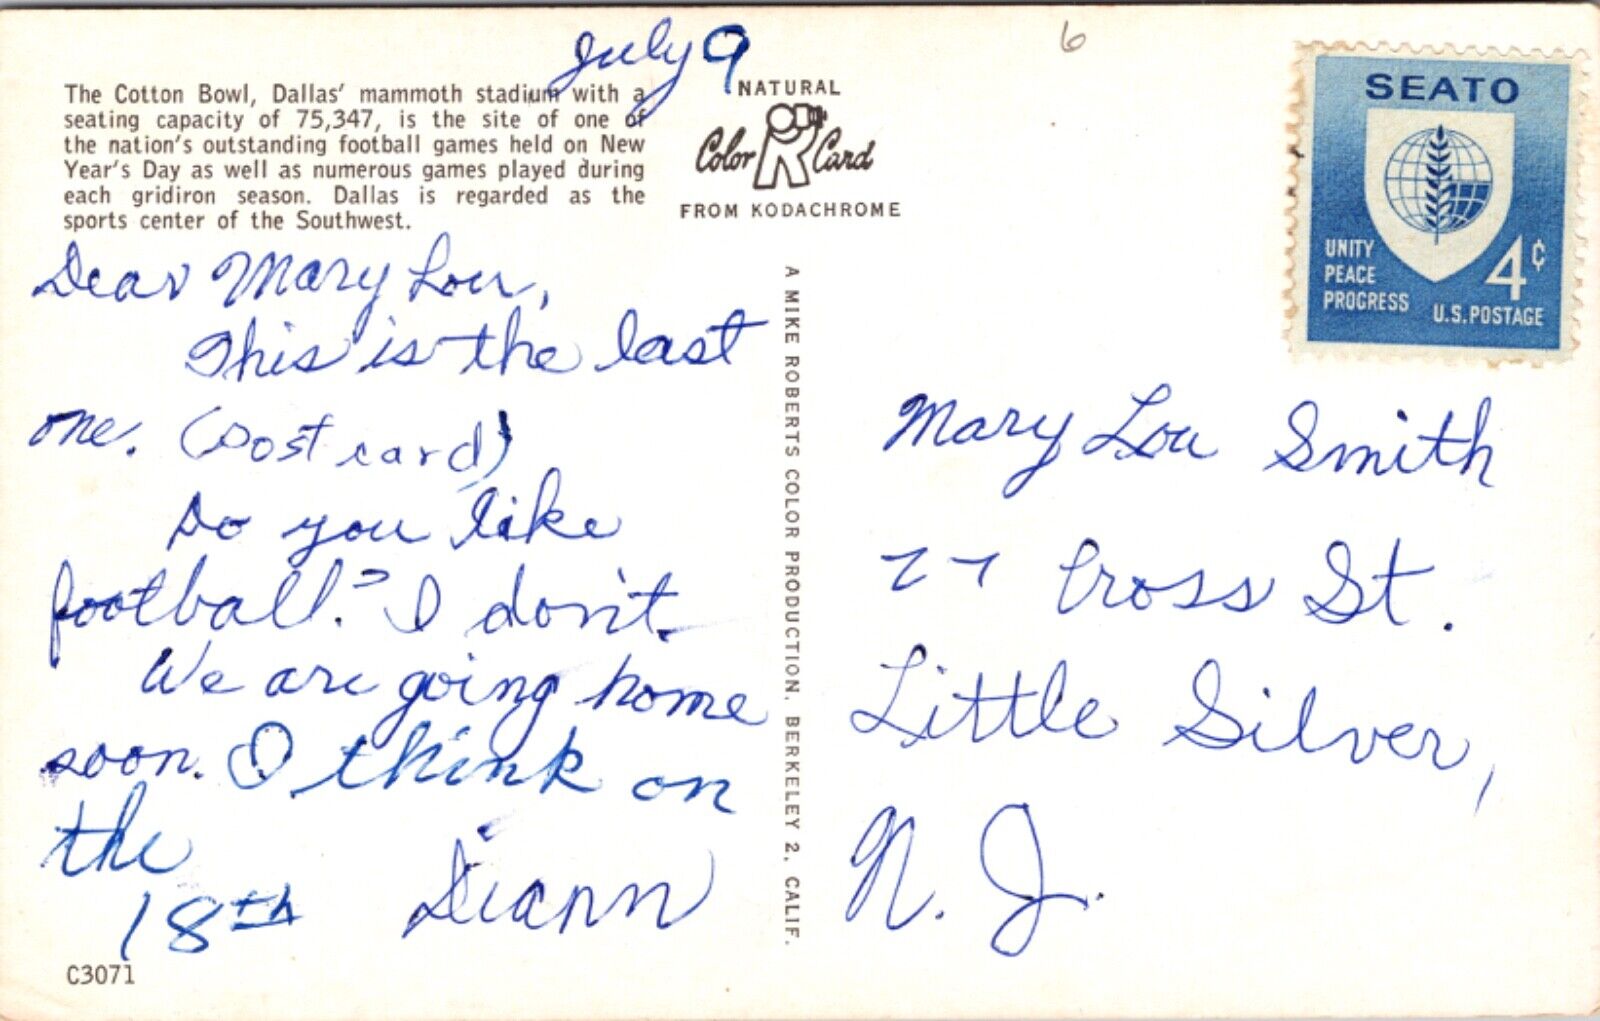 July 9
6
The Cotton Bowl, Dallas' mammoth stadium with a
seating capacity of 75,347, is the site of one of
the nation's outstanding football games held on New
Year's Day as well as numerous games played during
each gridiron season. Dallas is regarded as the
sports center of the Southwest.
NATURAL
Color Card
FROM KODACHROME
SEATO
UNITY
PEACE
PROGRESS
4¢
U.S. POSTAGE
Dear Mary Lou,
This is the last
one. (Post card)
Do you like
football? I don't.
We are going home
soon. I think on
the
18th
Diann
A MIKE ROBERTS COLOR PRODUCTION, BERKELEY 2, CALIF.
Mary Lou Smith
77 Cross St.
Little Silver,
N. J.
C3071